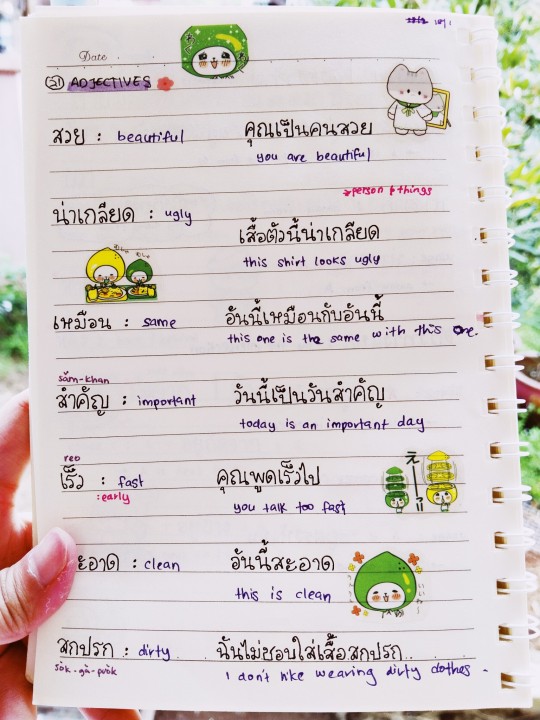 Date
(21) ADJECTIVES
สวย : beautiful คุณเป็นคนสวย
you are beautiful
→person & things
น่าเกลียด : ugly
เสื้อตัวนี้น่าเกลียด
this shirt looks ugly
เหมือน : same อันนี้เหมือนกับอันนี้
this one is the same with this one.
sǎm-khan
สำคัญ : important วันนี้เป็นวันสำคัญ
today is an important day
reo
เร็ว : fast คุณพูดเร็วไป
: early
you talk too fast
ะอาด : clean อันนี้สะอาด
this is clean
สกปรก : dirty ฉันไม่ชอบใส่เสื้อสกปรก
sòk-gà-pròk
I don't like wearing dirty clothes.